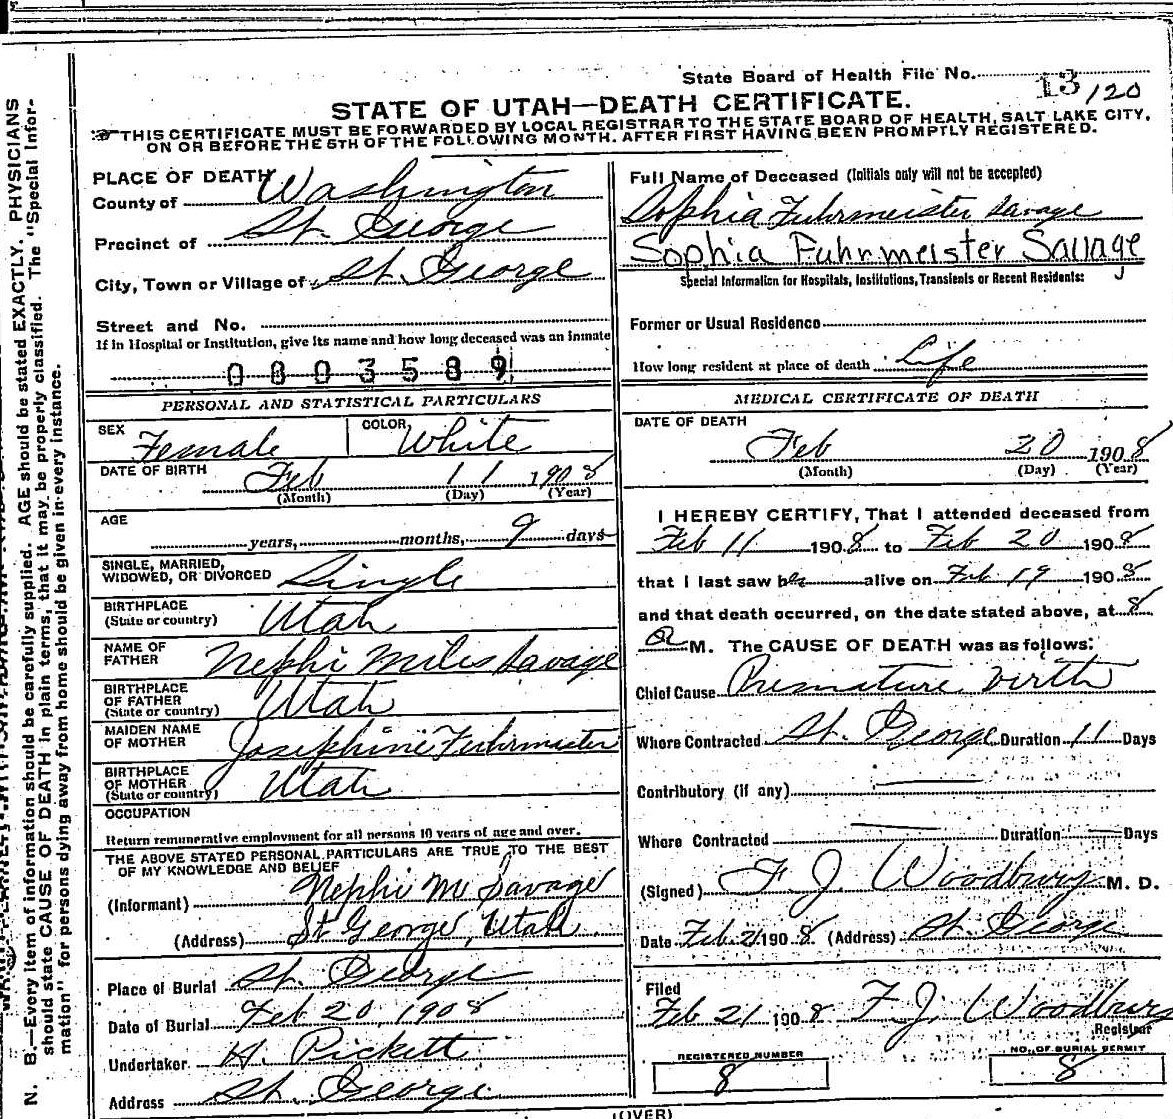 State Board of Health File No. 13/120
STATE OF UTAH—DEATH CERTIFICATE.
THIS CERTIFICATE MUST BE FORWARDED BY LOCAL REGISTRAR TO THE STATE BOARD OF HEALTH, SALT LAKE CITY,
ON OR BEFORE THE 5TH OF THE FOLLOWING MONTH, AFTER FIRST HAVING BEEN PROMPTLY REGISTERED.
PLACE OF DEATH
County of Washington
Precinct of St. George
City, Town or Village of St. George
Street and No.
If in Hospital or Institution, give its name and how long deceased was an inmate
0803589
PERSONAL AND STATISTICAL PARTICULARS
SEX Female COLOR White
DATE OF BIRTH Feb 11 1908
(Month) (Day) (Year)
AGE
years, months, 9 days
SINGLE, MARRIED,
WIDOWED, OR DIVORCED Single
BIRTHPLACE
(State or country) Utah
NAME OF
FATHER Nephi Miles Savage
BIRTHPLACE
OF FATHER
(State or country) Utah
MAIDEN NAME
OF MOTHER Josephine Fuhrmeister
BIRTHPLACE
OF MOTHER
(State or country) Utah
OCCUPATION
Return remunerative employment for all persons 10 years of age and over.
THE ABOVE STATED PERSONAL PARTICULARS ARE TRUE TO THE BEST
OF MY KNOWLEDGE AND BELIEF
(Informant) Nephi M Savage
(Address) St George, Utah
Place of Burial St. George
Date of Burial Feb 20, 1908
Undertaker H. Pickett
Address St. George
Full Name of Deceased (Initials only will not be accepted)
Sophia Fuhrmeister Savage
Sophia Fuhrmeister Savage
Special Information for Hospitals, Institutions, Transients or Recent Residents:
Former or Usual Residence
How long resident at place of death Life
MEDICAL CERTIFICATE OF DEATH
DATE OF DEATH
Feb 20 1908
(Month) (Day) (Year)
I HEREBY CERTIFY, That I attended deceased from
Feb 11 1908 to Feb 20 1908
that I last saw her alive on Feb 19 1908
and that death occurred, on the date stated above, at 8
a M. The CAUSE OF DEATH was as follows:
Chief Cause Premature birth
Where Contracted St. George Duration 11 Days
Contributory (if any)
Where Contracted Duration Days
(Signed) F. J. Woodbury M. D.
Date Feb 21 1908 (Address) St. George
Filed
Feb 21 1908 F. J. Woodbury
Registrar
REGISTERED NUMBER
8
NO. OF BURIAL PERMIT
8
(OVER)
N. B.—Every item of information should be carefully supplied. AGE should be stated EXACTLY. PHYSICIANS
should state CAUSE OF DEATH in plain terms, that it may be properly classified. The "Special Infor-
mation" for persons dying away from home should be given in every instance.